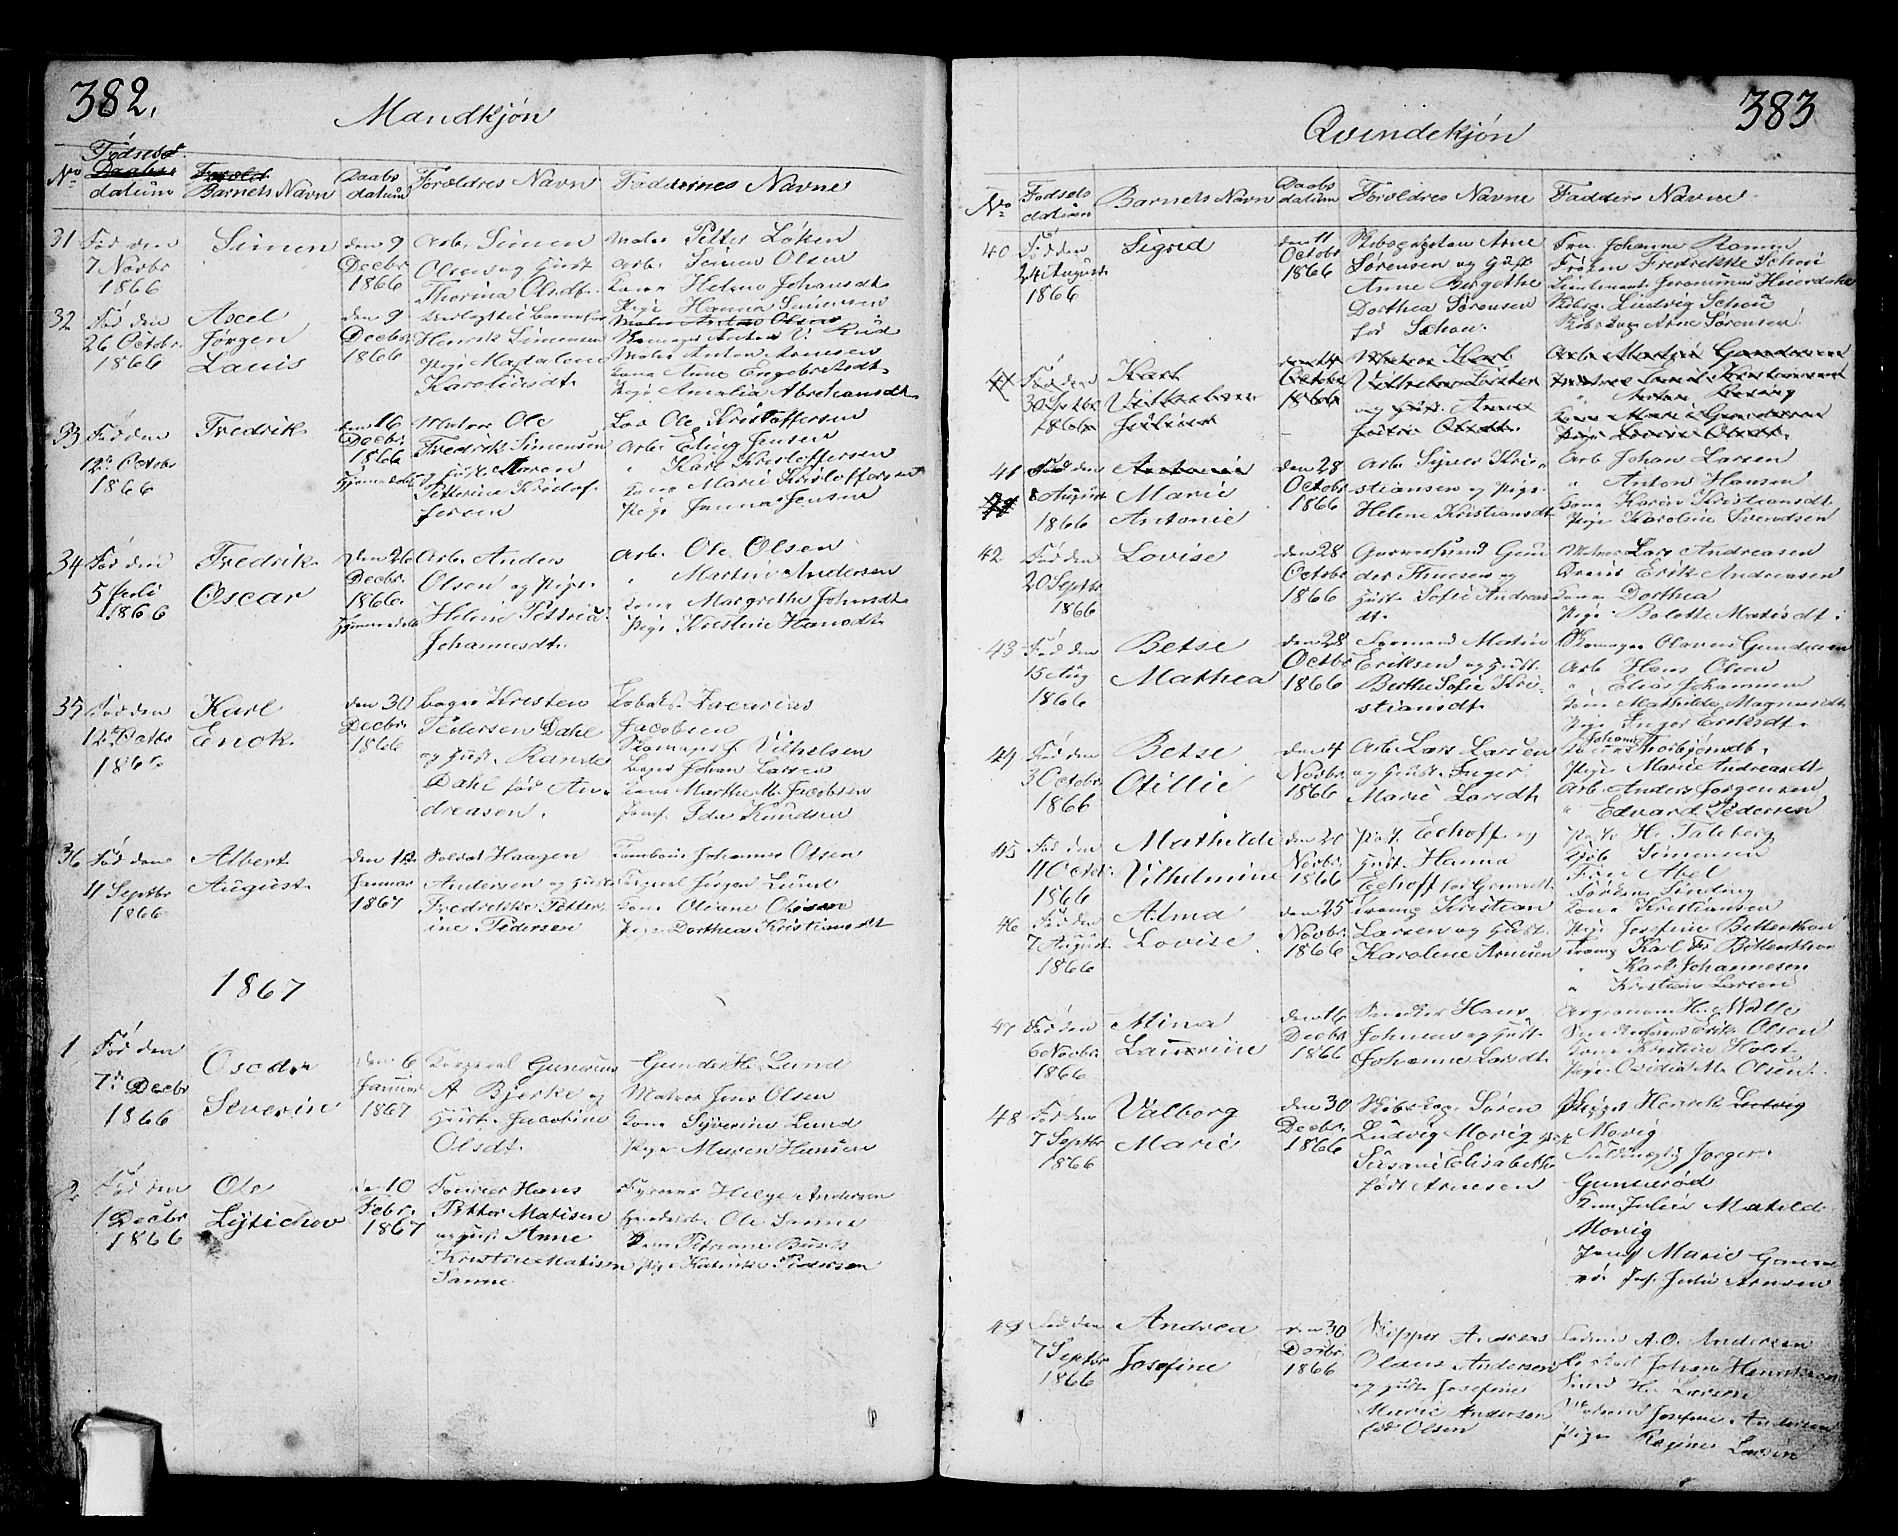 382.
Mandkjön
No
Födsels
datum
Barnets Navn
Daabs
datum
Forældres Navn
Faddernes Navne
31
Fød den
7 Novbr
1866
Simen
den 9
Decbr
1866
Arb. Simen
Olsen og Hust.
Thorina Olsdt.
Petter Løken
Arb. Simen Olsen
Kone Helene Johansdt
Pige Hanna Simensen
32
Fød den
26 Octobr.
1866
Axel
Jørgen
Lauis
den 9
Decbr
1866
Henrik Simensen
Pige Magdalene
Karolinesdt.
Matros Anton Olsen
Matros Anton Arnesen
Kone Anne Engebretsdt.
Pige Amalia Abrahamsdt.
33
Fød den
12te Octobr
1866
Fredrik
den 16
Decbr.
1866
Hjemmedøbt
Matros Ole
Fredrik Simensen
og Hust. Maren
Petterine Kristof-
fersen
Los Ole Kristoffersen
Arb. Eding Jensen
" Karl Kristoffersen
Kone Marie Kristoffersen
Pige Janna Jensen
34
Fød den
5 Juli
1866
Fredrik
Oscar
den 26
Decbr.
1866.
Hjemmedøbt
Arb. Anders
Olsen og Pige
Helene Pettrea
Johannesdt.
Arb. Ole Olsen
" Martin Andersen
Kone Margrethe Johnsdt.
Pige Kristine Hansdt.
35
Fød den
12te Octbr
186
Karl
Enok
den 30
Decbr.
1866
Bager Kresten
Pedersen Dahl
og Hust. Rande
Dahl fød An-
dreasen.
Jacobsen
Skomager J. Vilhelsen
Bager Johan Larsen
Kone Marthe M. Jacobsen
Jomf. Ida Knudsen
36
Fød den
4 Septbr
1866
Albert
August
den 12
Januar
1867
Soldat Haagen
Andersen og Hust.
Fredrikke Petter-
ine Pedersen
Tambour Johannes Olsen
Corporal Jørgen Lund
Kone Oliane Olsen
Pige Dorthea Kristiansdt
1867
1
Fød den
7de Decbr
1866
Oscar
Severin
den 6
Januar
1867
Corporal Gunerius
A Bjerke og
Hust. Jacobine
Olsdt.
Gunder H. Lund
Matros Jens Olsen
Kone Syverine Lund
Pige Maren Hansen
2
Fød den
1 Decbr
1866
Ole
Lytichov
den 10
Febr.
1867
Hans
Petter Matisen
og Hust. Anne
Kristine Matisen
Sanne
Helge Andersen
Ole Sanne
Kone Petriane Busch
Pige Katrine Pedersen
383
Qvindekjön
No
Fødsels
datum
Barnets Navn
Daabs
datum
Forældres Navne
Fadders Navne
40
Fød den
24 August
1866
Sigrid
den 11
Octobr
1866
Skibscaptain Arne
Sørensen og Hust.
Anne Birgithe
Dorthea Sørensen
fød Schøn.
Fru Johanne Ramm
Frøken Fredrikke Schøn
Lieutenant Jeronimus Heierdahl
Skibscap. Ludvig Schøn
Skibscap Arne Sørensen.
Fød den
30 Septbr
1866
Karl
Vilhelm
Julius
den 14
Octobr
1866
Matros Karl
og Hust. Anne
Arb. Martin Gundersen
Kone Marie Gundersen
Pige Lovise Olsdt.
41
Fød den
8 August
1866
Antonie
Marie
Antonie
den 28
Octobr
1866
Arb. Syver Kri-
stiansen og Pige
Helene Kristiansdt
Arb Johan Larsen
" Anton Hansen
Kone Karen Kristiansdt
Pige Karoline Svendsen
42
Fød den
20 Septbr
1866
Lovise
den 28
Octobr
1866
Garversvend Gun-
der Thuesen og
Hust. Sofie Andreas
dt.
Matros Lars Andreasen
Erik Andreasen
Kone Dorthea
Pige Bolette Matisdt.
43
Fød den
15 Aug
1866
Betse
Mathea
den 28
Octbr
1866
Formand Martin
Eriksen og Hust.
Berthe Sofie Kri-
stiansdt.
Skomager Olavus Gundersen
Arb Hans Olsen
" Elias Johannesen
Kone Mathilde Magnusdt
Pige Inger Eriksdt.
44
Fød den
3 Octobr
1866
Betse
Otillie
den 4
Novbr.
1866
Arb. Lars Larsen
og Hust. Inger
Marie Larsdt.
Kone Johanne Thorbjørnsdt.
Pige Marie Andreasdt
Arb. Anders Jørgensen
" Edvard Pedersen
45
Fød den
4 Octobr.
1866
Mathilde
Vilhelmine
den 20
Novbr.
1866
Eckhoff og
Hust. Hanna
Eckhoff fød
H. Taleberg
Simensen
Fru Abel
Frøken Sinding
46
Fød den
7 August
1866
Alma
Lovise
den 25
Novbr.
1866
Kristian
Larsen og Hust.
Karoline Arnesen
Kone Kristiansen
Pige Josefine
Karl Fr
" Karl Johannesen
" Kristian Larsen
47
Fød den
6 Novbr.
1866
Mina
Laurine
den 16
Decbr.
1866
Snedker Hans
Johnsen og Hust.
Johanne Larsdt.
H. Wille
Erik Olsen
Kone Kristine Holst
Pige Ovidia M. Olsen.
48
Fød den
7 Septbr
1866
Valborg
Marie
den 30
Decbr.
1866
Skibscap. Søren
Ludvig Movig og Hust
Susane Elisabeth
født Arnesen
Henrik Ludvig
Movig
Jørgen
Gunnerød
Julie Matilde
Movig
Jomf Marie Gunne-
rød Jof. Julie Arnesen
49
Fød den
7 Septbr
1866
Andrea
Josefine
den 30
Decbr.
1866
Skipper Andreas
Olaus Andersen
og Hust Josefine
Marie Andersen
fød Olsen
A. O. Andersen
Johan Henriksen
H. Larsen
Josefine Andersen
Pige Regine Larsen